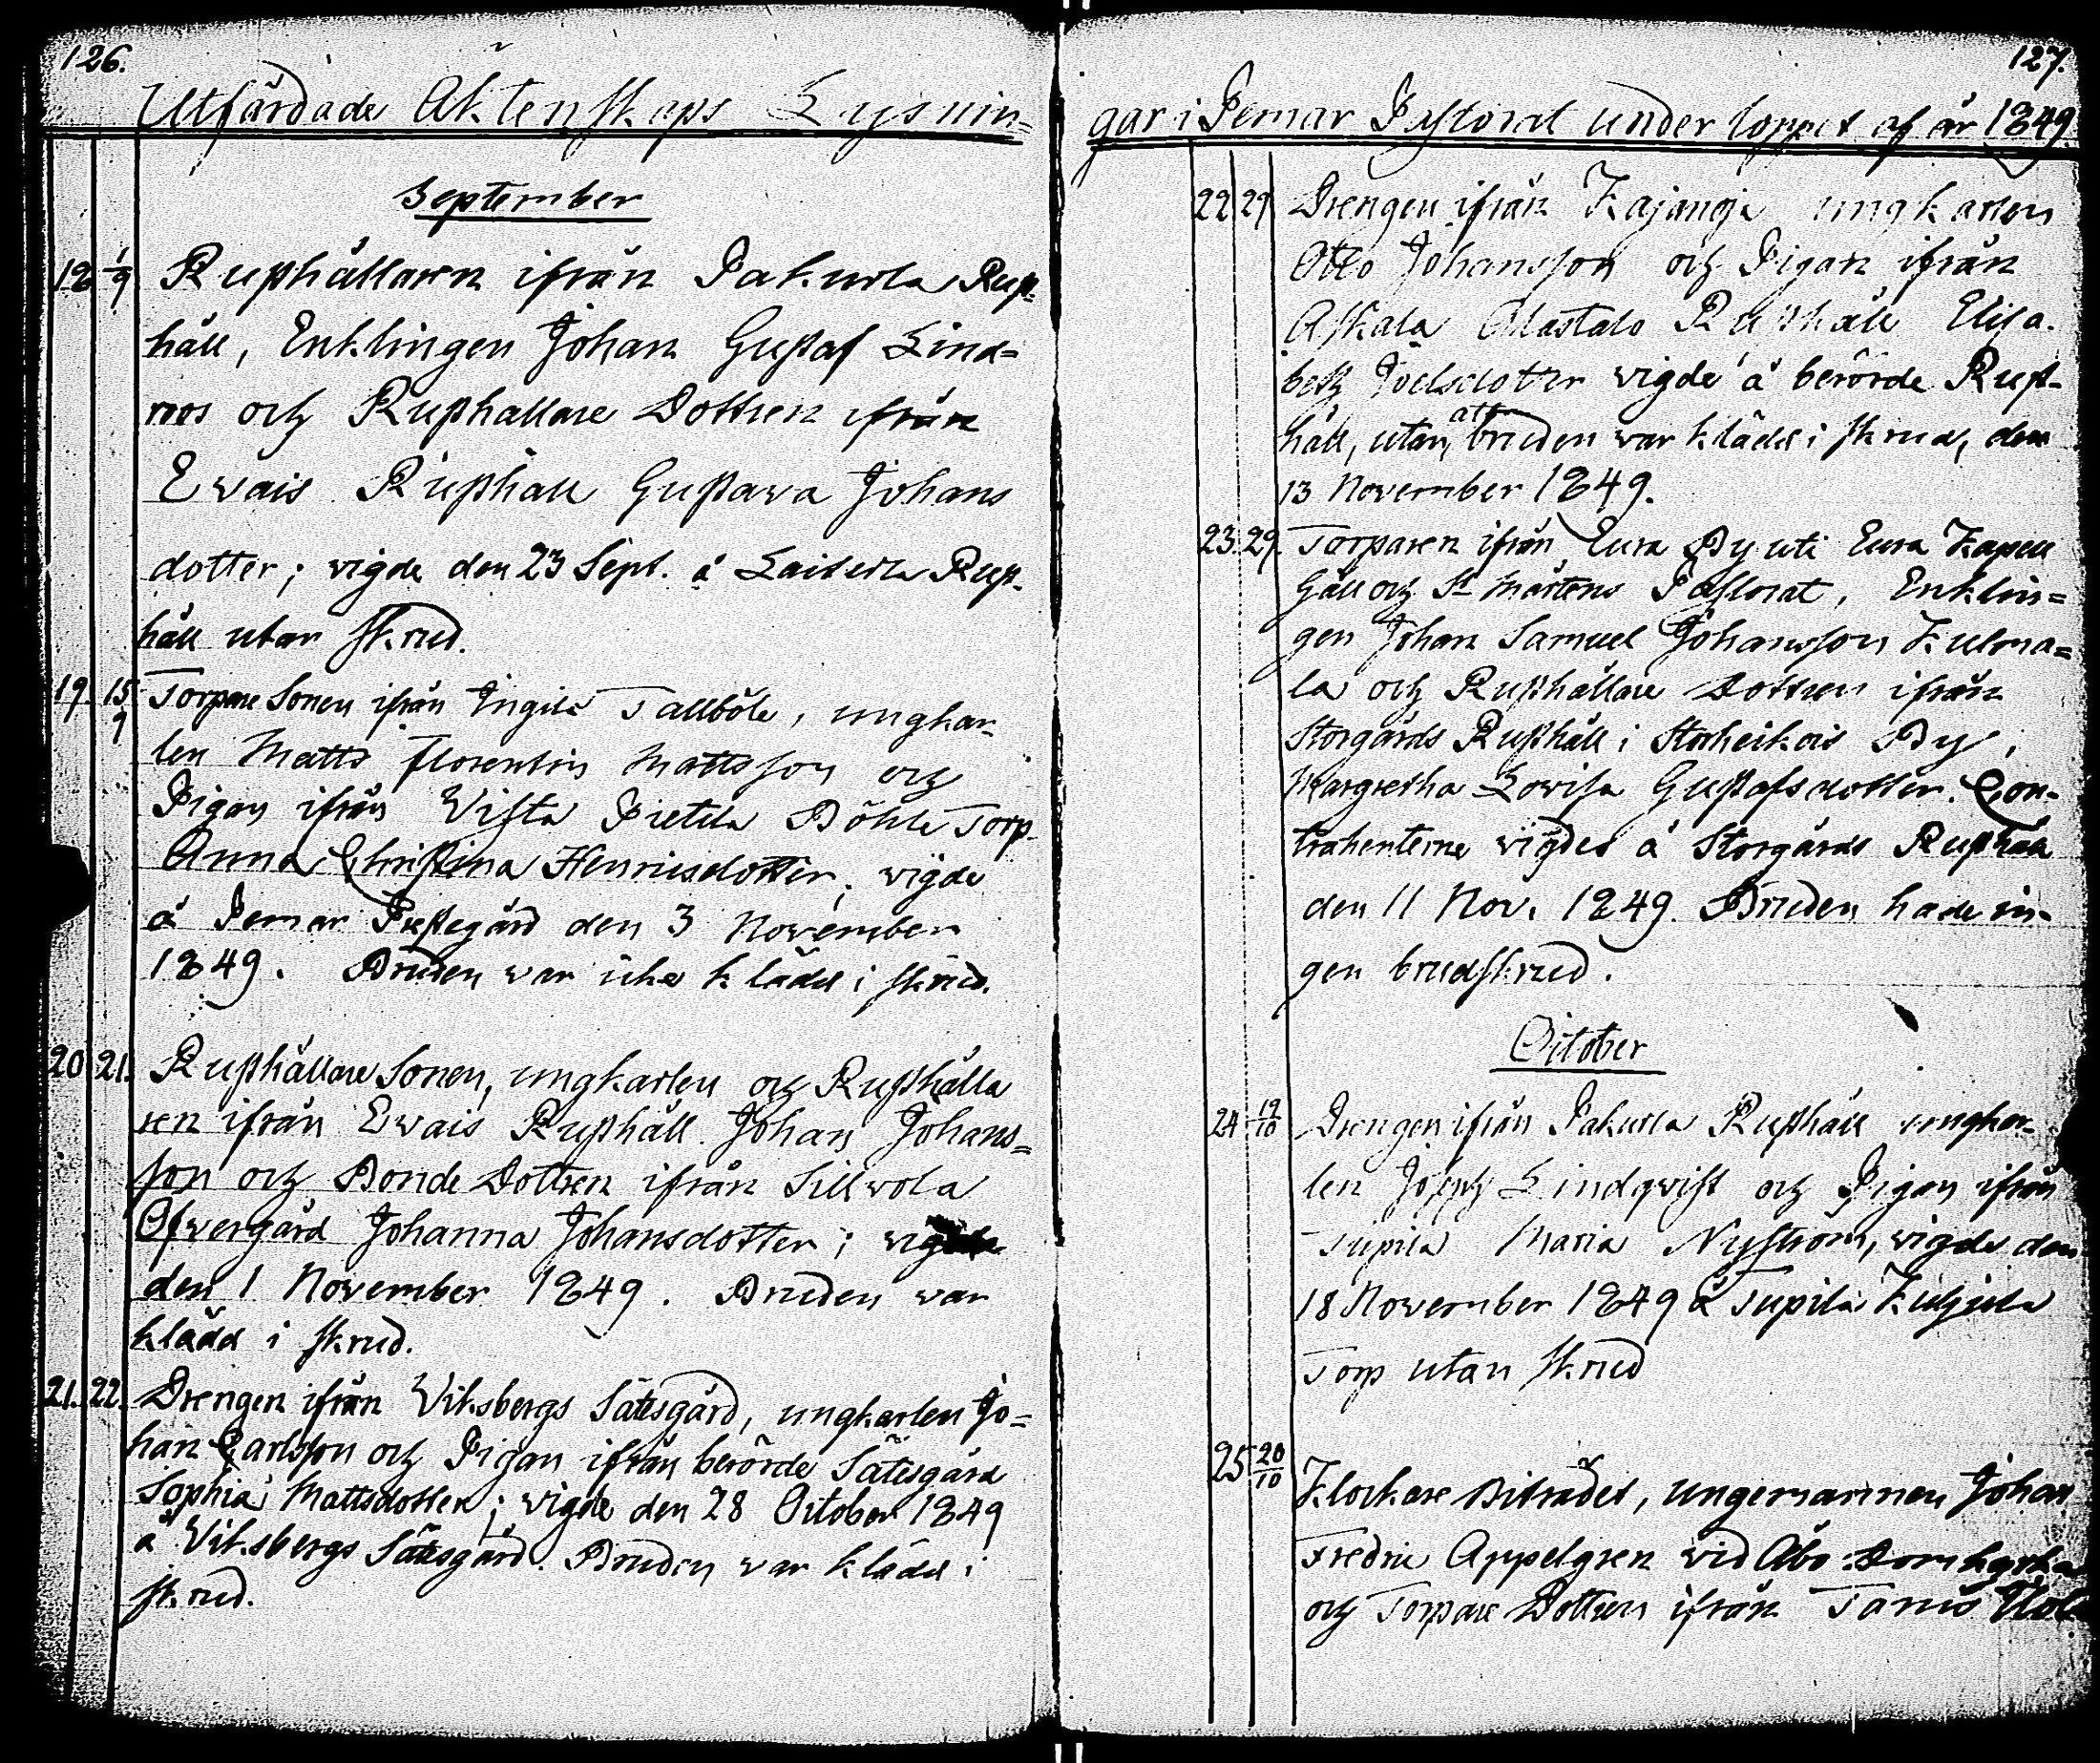 126.
Utfärdade Äktenskaps Lysnin=
September
18 1/9 Rusthållaren ifrån Pakurla Rust-
håll, Enklingen Johan Gustaf Lind=
roos och Rusthållare Dottren ifrån
Ewais Rusthåll Gustava Johans
dotter; vigde den 23 Sept. å Laiterla Rust-
håll utan skrud.
19. 15/9 Torpare Sonen ifrån Ingilä Tallböle, ungkar-
len Matts Florentin Mattsson och
Pigan ifrån Vista Pietilä Böhle Torp
Anna Christina Henricsdotter; vigde
å Pemar Prestegård den 3 November
1849. Bruden war icke klädd i skrud.
20 21. Rusthållare Sonen, ungkarlen och Rusthålla
ren ifrån Ewais Rusthåll Johan Johans=
son och Bonde Dottren ifrån Sillvola
Öfvergård Johanna Johansdotter; vigde
den 1 November 1849. Bruden war
klädd i skrud.
21. 22. Drengen ifrån Viksbergs Sätesgård, ungkarlen Jo=
han Carlsson och Pigan ifrån berörde Sätesgård
Sophia Mattsdotter; vigde den 28 October 1849
å Viksbergs Sätesgård. Bruden war klädd i
skrud.
127.
gar i Pemar Pastorat under loppet af år 1849
22 29 Drengen ifrån Kajanoja ungkarlen
Otto Johansson och Pigan ifrån
Askala Alastalo Rusthåll Elisa-
beth Joelsdotter vigde å berörde Rust-
håll, utan att bruden war klädd i skrud, den
13 November 1849.
23. 29. Torparen ifrån Eura By uti Eura Kapell
Gäll och St Mårtens Pastorat, Enklin=
gen Johan Samuel Johansson Kulma=
la och Rusthållare Dottren ifrån
Storgårds Rusthåll i Storheikois By,
Margretha Lovisa Gustafsdotter. Con-
trahenterne vigdes å Storgårds Rusthåll
den 11 Nov. 1849. Bruden hade in-
gen brudskrud.
October
24 19/10 Drengen ifrån Pakurla Rusthåll ungkar-
len Joseph Lindqvist och Pigan ifrån
Tupila Maria Nyström, vigde den
18 November 1849 å Tupila Kuljula
Torp utan skrud
25 20/10 Klockare Biträdet, ungemannen Johan
Fredric Appelgren vid Åbo Domkyrka
och Torpare Dottren ifrån